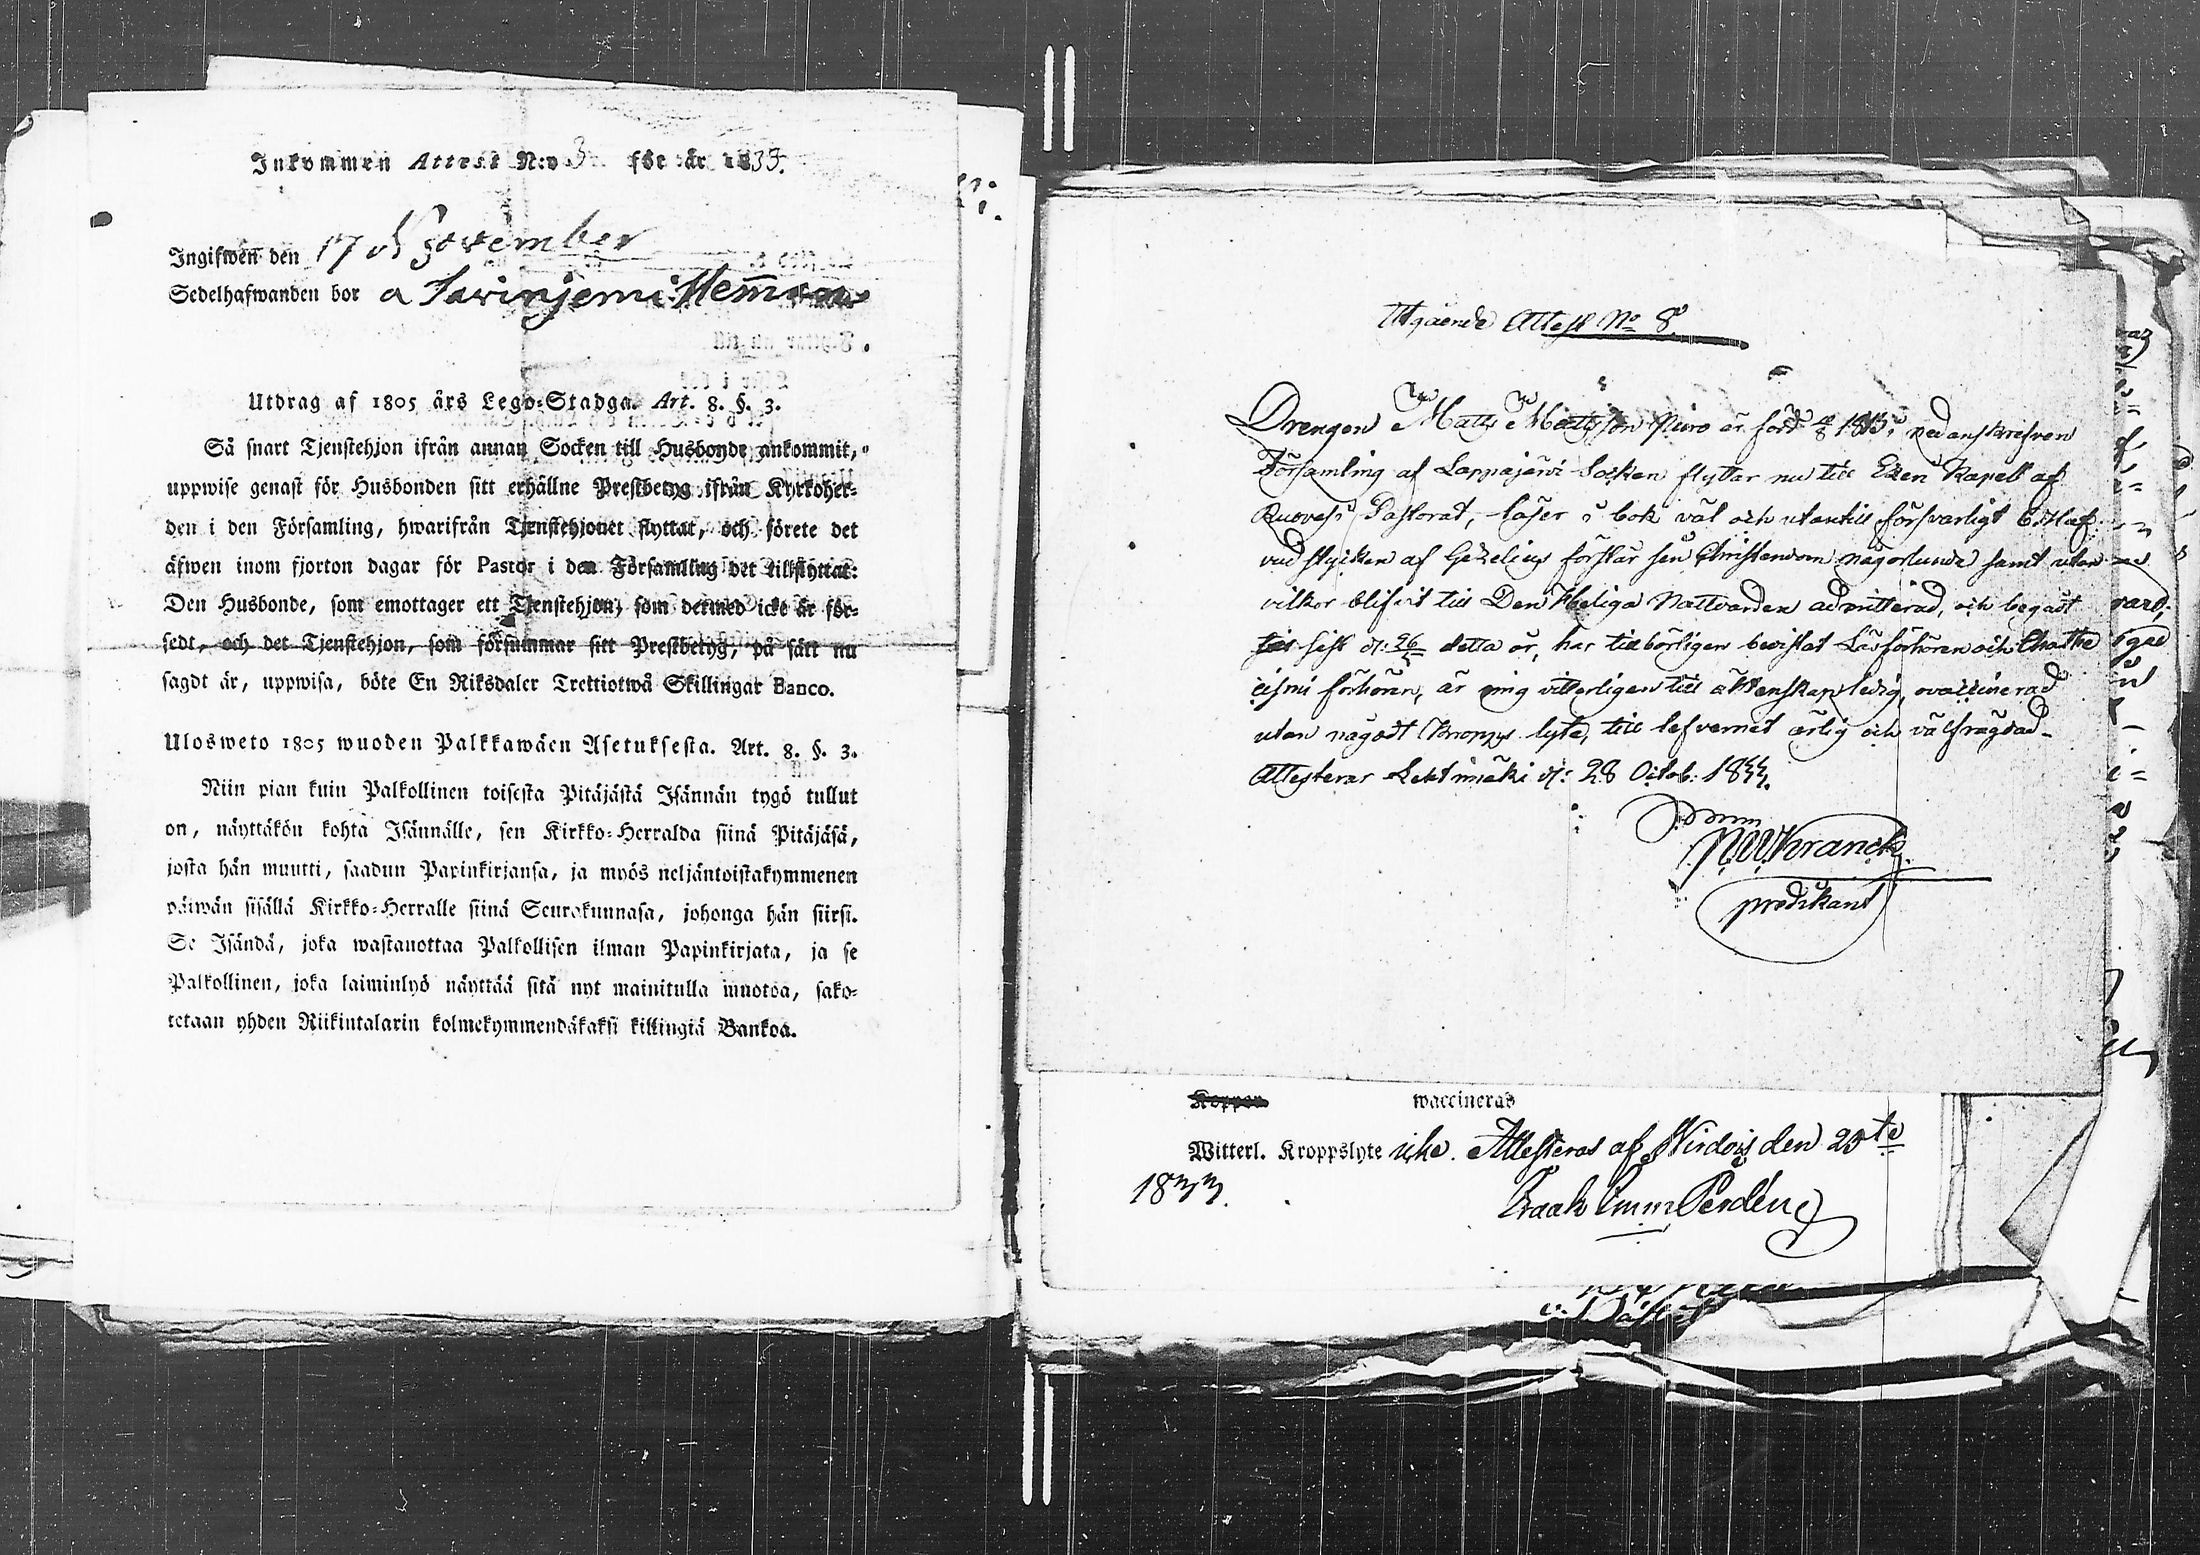 Inkommen Attest N:o 3 för år 1833.
Ingifwen den 17 November
Sedelhafwanden bor a Sarinjemi Hemman
Utdrag af 1805 års Lego-Stadga. Art. 8. §. 3.
Så snart Tjenstehjon ifrån annan Socken till Husbonde ankommit,
uppwise genast för Husbonden sitt erhållne Prestbetyg ifrån Kyrkoher-
den i den Församling, hwarifrån Tjenstehjonet flyttat, och förete det
äfwen inom fjorton dagar för Pastor i den Församling det tillflyttat:
Den Husbonde, som emottager ett Tjenstehjon, som dermed icke är för-
sedt, och det Tjenstehjon, som försummar sitt Prestbetyg, på sätt nu
sagdt är, uppwisa, böte En Riksdaler Trettiotwå Skillingar Banco.
Ulosweto 1805 wuoden Palkkawäen Asetuksesta. Art. 8. §. 3.
Niin pian kuin Palkollinen toisesta Pitäjästä Isännän tygö tullut
on, näyttäkön kohta Isännälle, sen Kirkko-Herralda siinä Pitäjäsä,
josta hän muutti, saadun Papinkirjansa, ja myös neljäntoistakymmenen
päiwän sisällä Kirkko-Herralle siinä Seurakunnasa, johonga hän siirsi.
Se Isändä, joka wastanottaa Palkollisen ilman Papinkirjata, ja se
Palkollinen, joka laiminlyö näyttää sitä nyt mainitulla muotoa, sako-
tetaan yhden Riikintalarin kolmekymmendäkaksi killingiä Bankoa.
Utgående Attest No 8
Drengen Matts Mattsson Niiro är född 1813 i nedanskrefven
Församling af Lappajärvi Socken flyttar nu till Etzeri Kapell af
Ruovesi Pastorat, läser i bok väl och utantill försvarligt
stycken af Gezelius förstår sin Christendom någorlunda samt utan
vilkor blifvit till Den Heliga Nattvarden admitterad, och begådt
sist d: detta år, har tillbörligen bevistat Läsförhören och Chathe
cismi förhören, är mig vitterligen till äktenskap ledig, vaccinerad
utan någodt kropps lyte, till lefvernet ärlig och välfrägdad.
Attesterar Lehtimäki d: 28 Octob: 1833.
N W Kranck
predikant
Koppor waccinerad
Witterl. Kroppslyte icke. Attesteras af Wirdois den
1833.
Isaak Emm Perdén